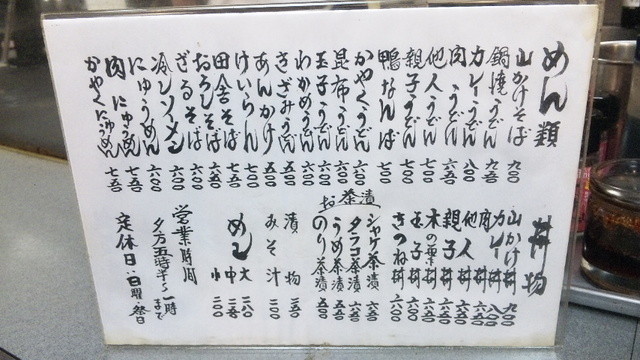 めん類
山かけそば 九〇〇
鍋焼うどん 九五〇
カレーうどん 八〇〇
肉うどん 六五〇
他人うどん 七〇〇
親子うどん 七〇〇
鴨なんば 七〇〇
かやくうどん 六五〇
昆布うどん 六〇〇
玉子うどん 六〇〇
わかめうどん 六〇〇
きざみうどん 五五〇
あんかけ 五〇〇
けいらん 六〇〇
田舎そば 七五〇
おろしそば 六五〇
ざるそば 六〇〇
冷しソーメン 六〇〇
にゅうめん 六〇〇
肉にゅうめん 七五〇
かやくにゅうめん 七五〇
丼物
山かけ丼 九〇〇
カレー丼 八〇〇
肉丼
他人丼 六五〇
親子丼 六五〇
木の葉丼 六〇〇
玉子丼 六〇〇
きつね丼 六〇〇
お茶漬
シャケ茶漬 六五〇
タラコ茶漬 六五〇
うめ茶漬 五五〇
のり茶漬 五五〇
漬物 二五〇
みそ汁 二〇〇
めし 大 二八〇
中 二五〇
小 二〇〇
営業時間
夕方五時半〜一時まで
定休日:日曜・祭日